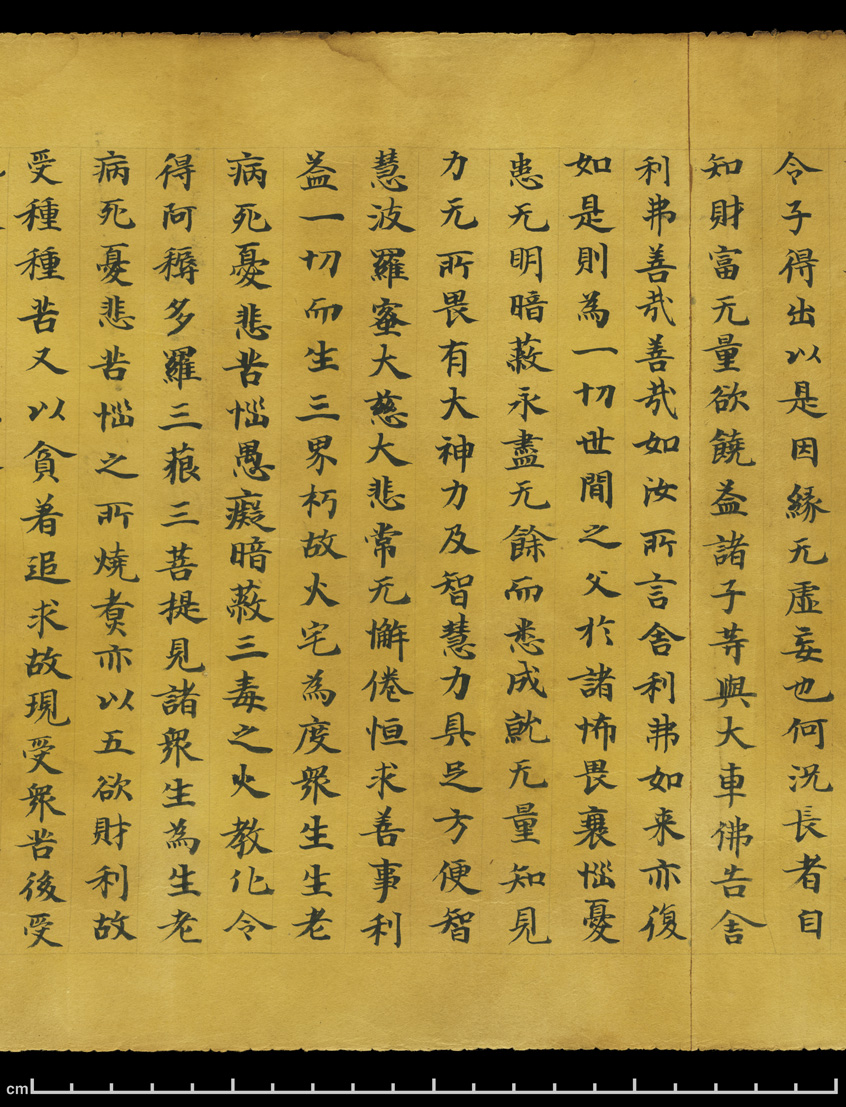 令子得出以是因縁无虛妄也何況長者自
知財富无量欲饒益諸子等與大車佛告舍
利弗善哉善哉如汝所言舍利弗如来亦復
如是則為一切世間之父於諸怖畏衰惱憂
患无明暗蔽永盡无餘而悉成就无量知見
力无所畏有大神力及智慧力具足方便智
慧波羅蜜大慈大悲常无懈倦恒求善事利
益一切而生三界朽故火宅為度衆生生老
病死憂悲苦惱愚癡暗蔽三毒之火教化令
得阿耨多羅三藐三菩提見諸衆生為生老
病死憂悲苦惱之所燒煮亦以五欲財利故
受種種苦又以貪着追求故現受衆苦後受
cm